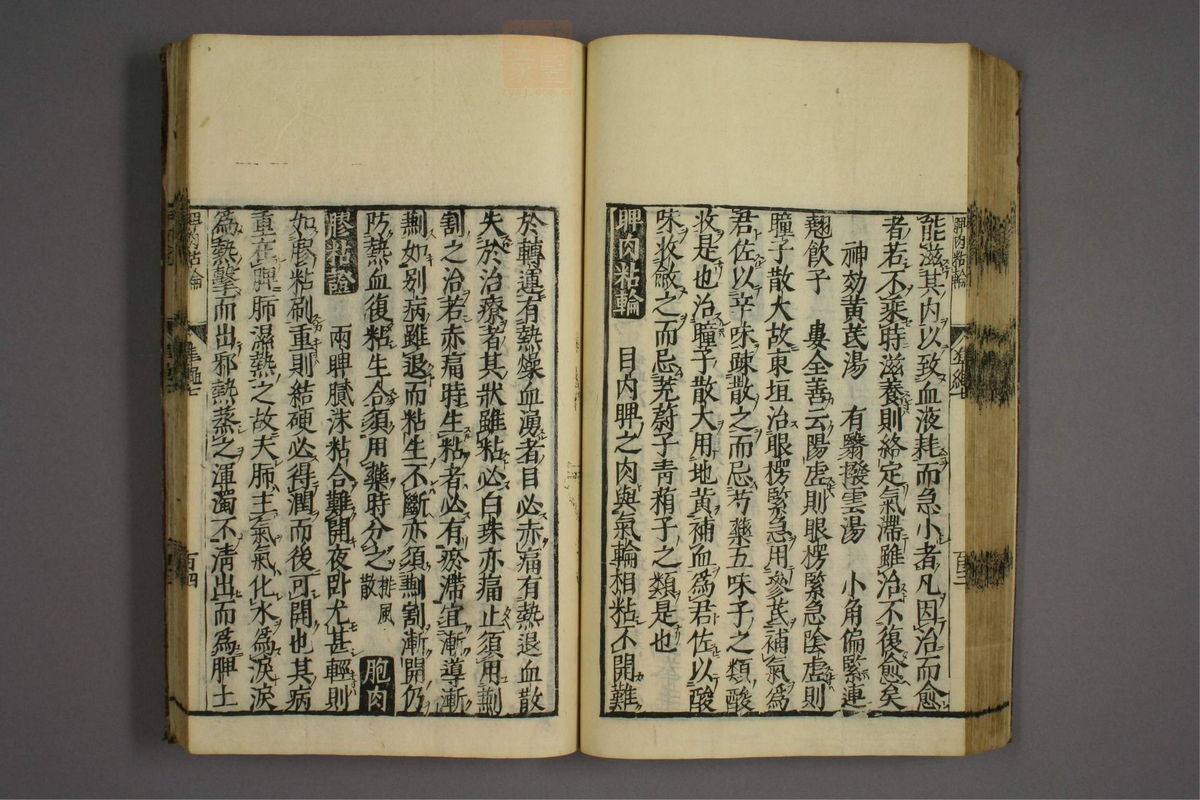 能滋其内以致血液耗而急小者凡因治而愈
者若不乘時滋養則絡定氣滯雖治不復愈矣
神効黃芪湯　有翳撥雲湯　小角偏緊連
翹飲子　婁全善云陽虛則眼楞緊急陰虛則
瞳子散大故東垣治眼楞緊急用參芪補氣爲
君佐以辛味疎散之而忌芍藥五味子之類酸
收是也治瞳子散大用地黃補血爲君佐以酸
味收斂之而忌茺蔚子青葙子之類是也
睥肉粘輪　目内睥之肉與氣輪相粘不開難
於轉運有熱燥血湧者目必赤痛有熱退血散
失於治療者其狀雖粘必白珠亦痛止須用劆
割之治若赤痛時生粘者必有瘀滯宜漸導漸
劆如别病雖退而粘生不斷亦須劆割漸開仍
防熱血復粘生合須用藥時分之 排風散　胞肉
膠粘證　兩睥膩沫粘合難開夜卧尤甚輕則
如膠粘刷重則結硬必得潤而後可開也其病
重在脾肺濕熱之故夫肺主氣氣化水爲淚淚
爲熱擊而出邪熱蒸之渾濁不淸出而爲脾土